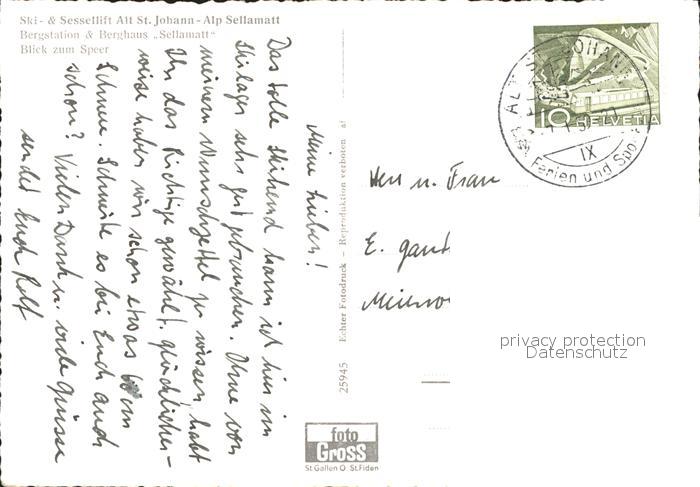 Ski- & Sessellift Alt St. Johann - Alp Sellamatt
Bergstation & Berghaus „Sellamatt"
Blick zum Speer
Meine Lieben!
Das tolle Skihemd kann ich hier im
Skilager sehr gut gebrauchen. Ohne von
meinem Wunschzettel zu wissen, habt
Ihr das Richtige gewählt. Glücklicher-
weise haben wir schon etwas cm
Schnee. Schneite es bei Euch auch
schon? Vielen Dank u. viele Grüsse
sendet Euch Rolf
25945 Echter Fotodruck - Reproduktion verboten
foto
Gross
St Gallen O. St. Fiden
ALT ST. JOHANN
IX
Ferien und Spo
10 HELVETIA
Herrn u. Frau
E.
privacy protection
Datenschutz